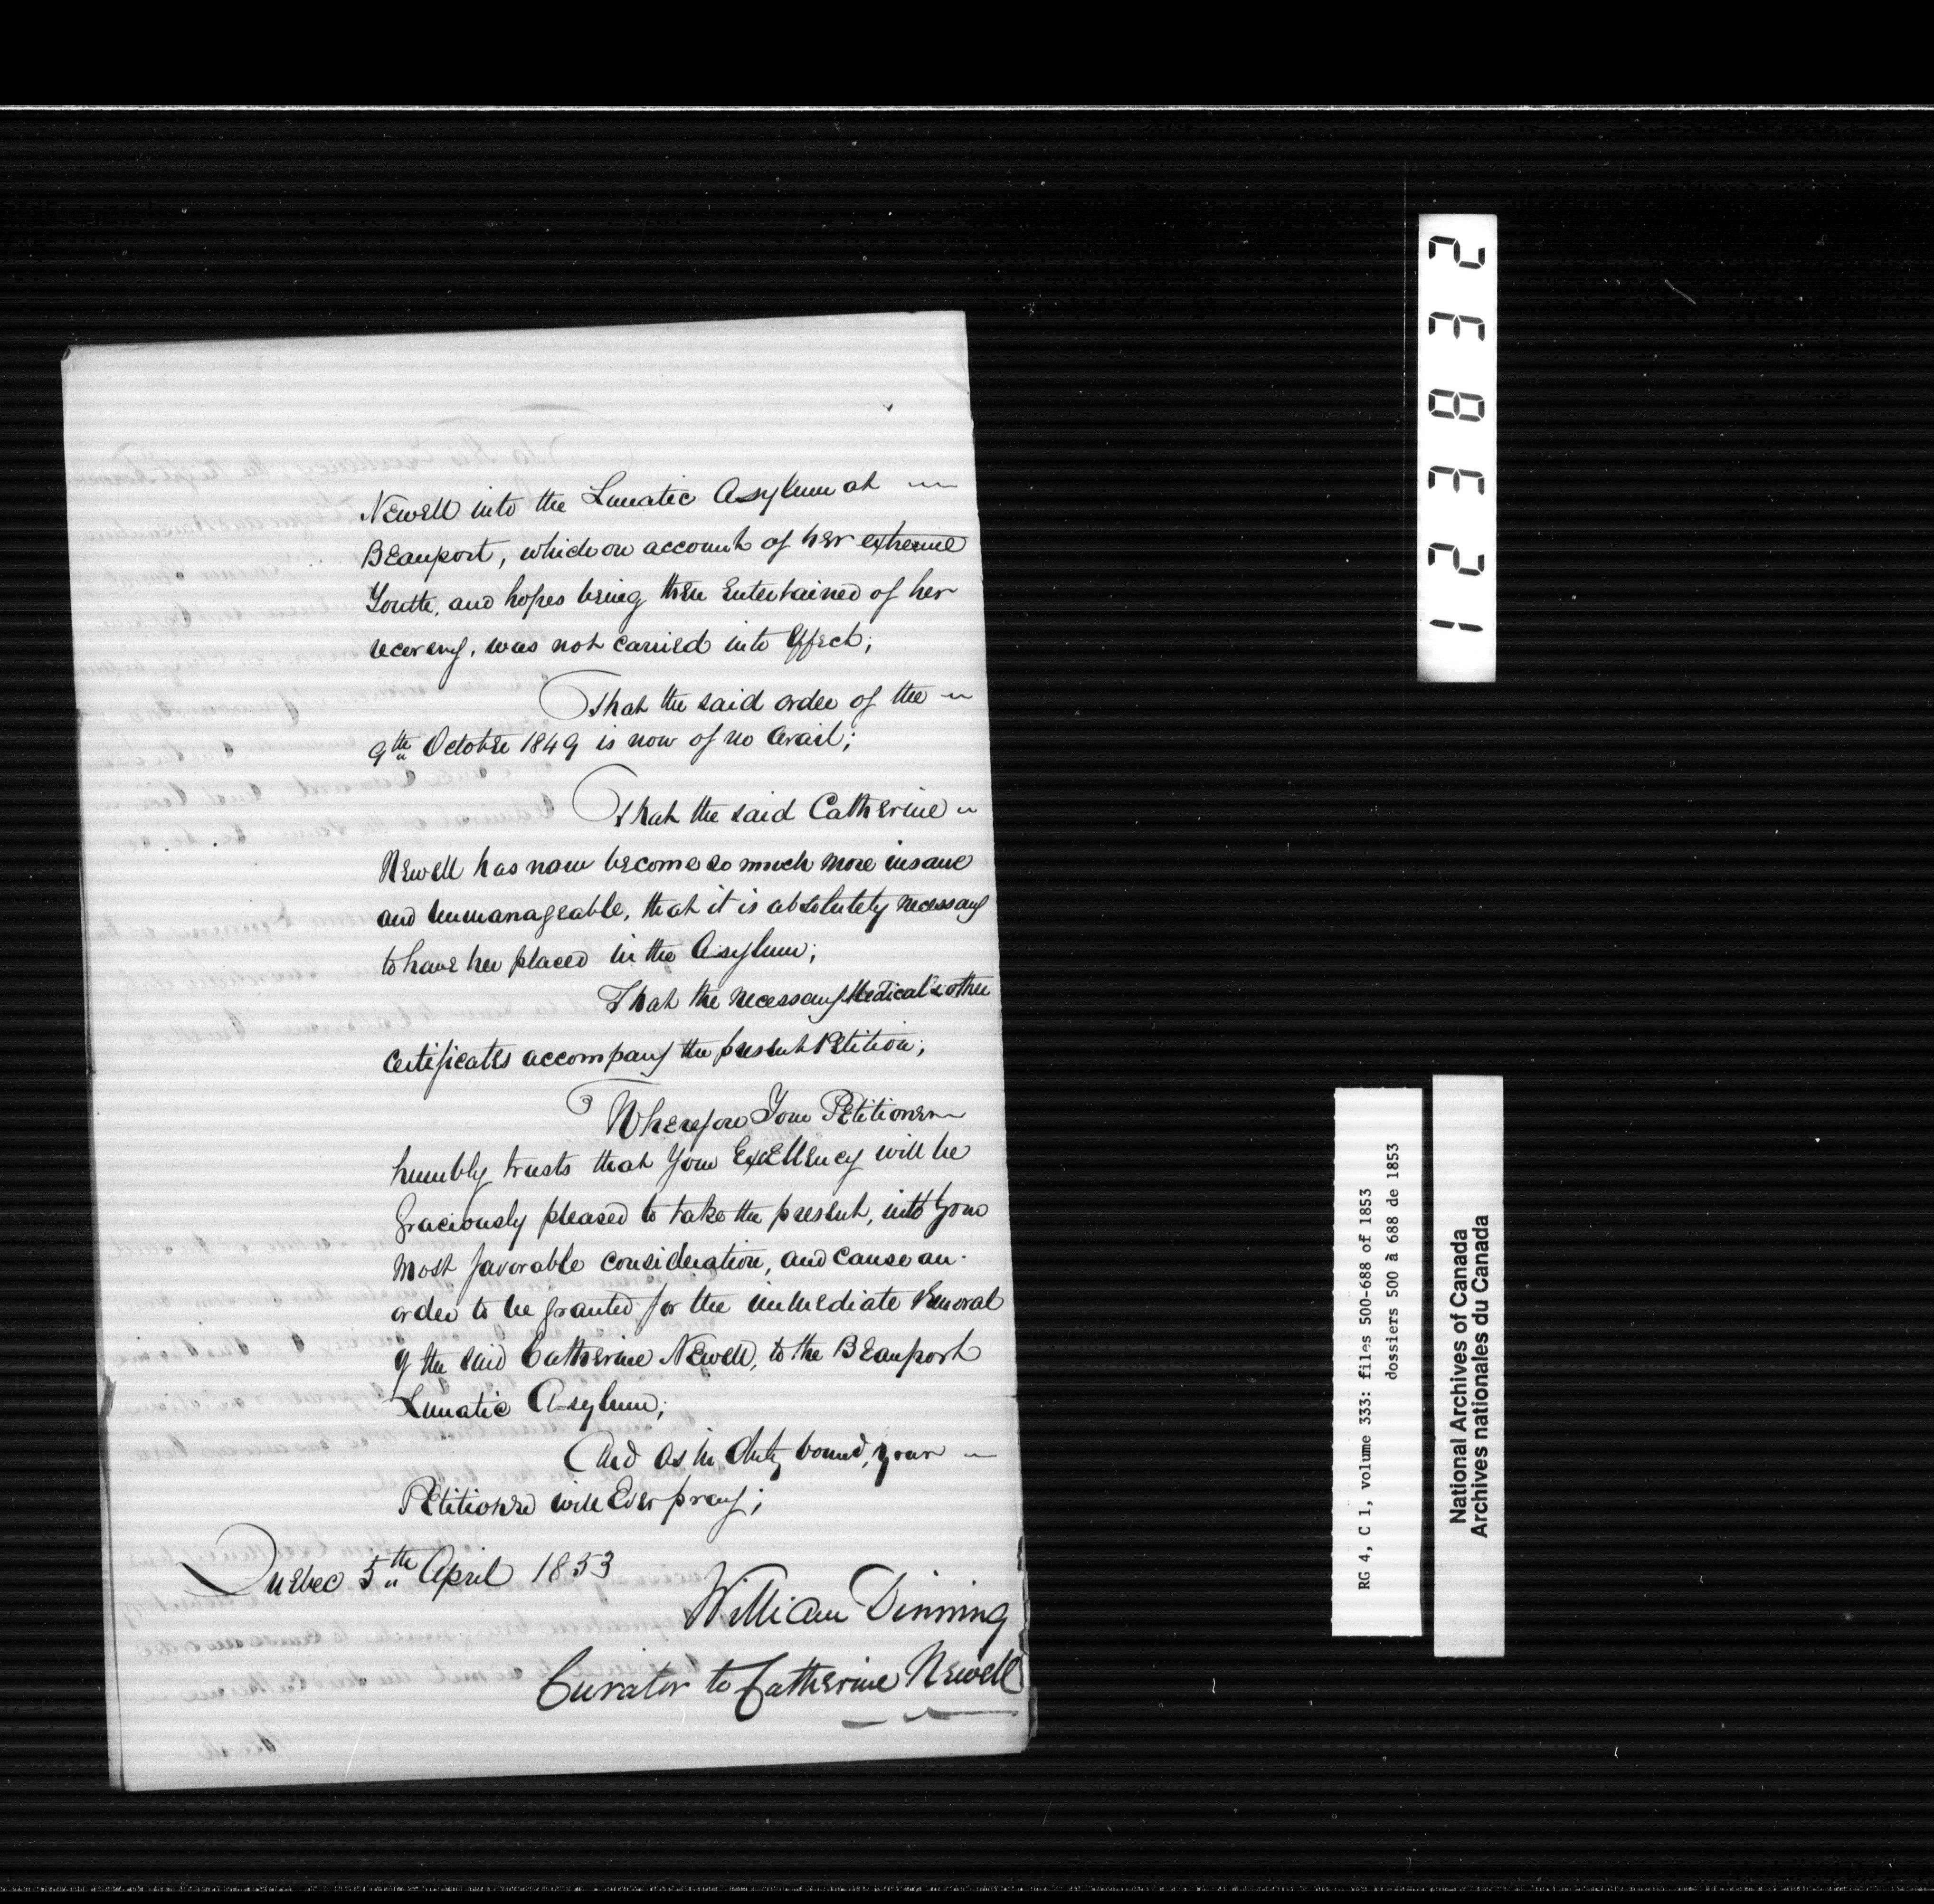 Newell into the Lunatic Asylum at
Beauport, which on account of her extreme
Youth, and hopes being then Entertained of her
recovery, was not carried into Effect;
That the said order of the
9th October 1849 is now of no avail;
That the said Catherine
Newell has now become so much more insane
and unmanageable, that it is absolutely necessary
to have her placed in the Asylum;
That the necessary Medical & other
Certificates accompany the present Petition;
Wherefore Your Petitioner
humbly trusts that Your Excellency will be
Graciously pleased to take the present, into your
most favorable consideration, and cause an
order to be granted for the immediate removal
of the said Catherine Newell, to the Beauport
Lunatic Asylum;
And as in duty bound, your
Petitioner will Ever pray;
Quebec 5th April 1853
William Dinning
Curator to Catherine Newell
123832
RG 4, C 1, volume 333: files 500-688 of 1853
dossiers 500 à 688 de 1853
National Archives of Canada
Archives nationales du Canada